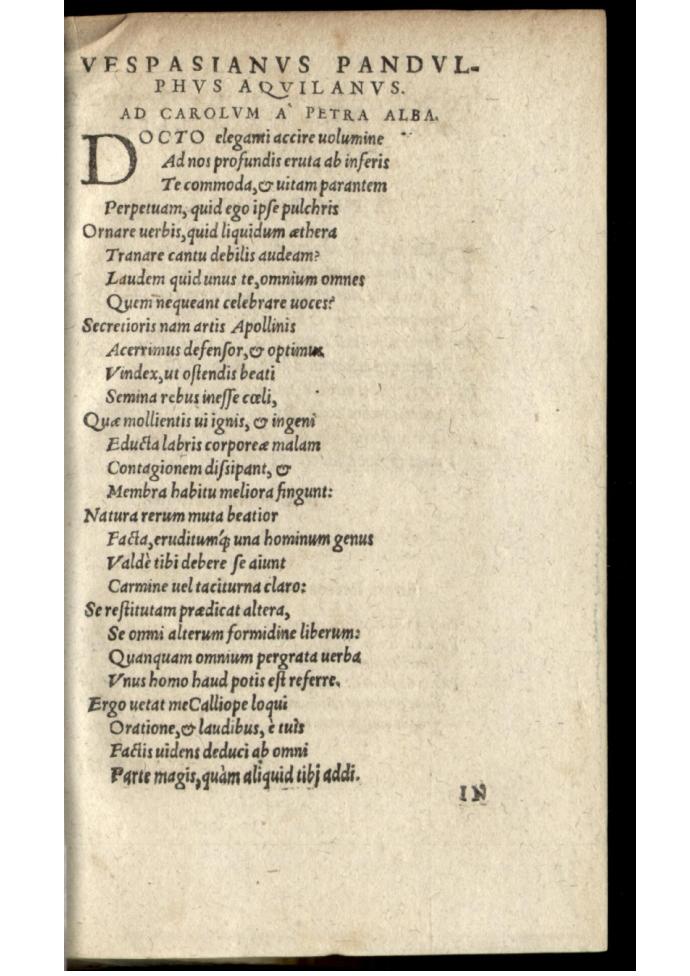 VESPASIANVS PANDVL-
PHVS AQVILANVS.
AD CAROLVM A' PETRA ALBA.
DOCTO eleganti accire uolumine
Ad nos profundis eruta ab inferis
Te commoda, & uitam parantem
Perpetuam, quid ego ipſe pulchris
Ornare uerbis, quid liquidum æthera
Tranare cantu debilis audeam?
Laudem quid unus te, omnium omnes
Quem nequeant celebrare uoces?
Secretioris nam artis Apollinis
Acerrimus defenſor, & optimus
Vindex, ut oſtendis beati
Semina rebus ineſſe cœli,
Quæ mollientis ui ignis, & ingenî
Educta labris corporeæ malam
Contagionem diſsipant, &
Membra habitu meliora fingunt:
Natura rerum muta beatior
Facta, eruditumq́; una hominum genus
Valdè tibi debere ſe aiunt
Carmine uel taciturna claro:
Se reſtitutam prædicat altera,
Se omni alterum formidine liberum:
Quanquam omnium pergrata uerba
Vnus homo haud potis eſt referre.
Ergo uetat me Calliope loqui
Oratione, & laudibus, è tuis
Factis uidens deduci ab omni
Parte magis, quàm aliquid tibj addi.
IN